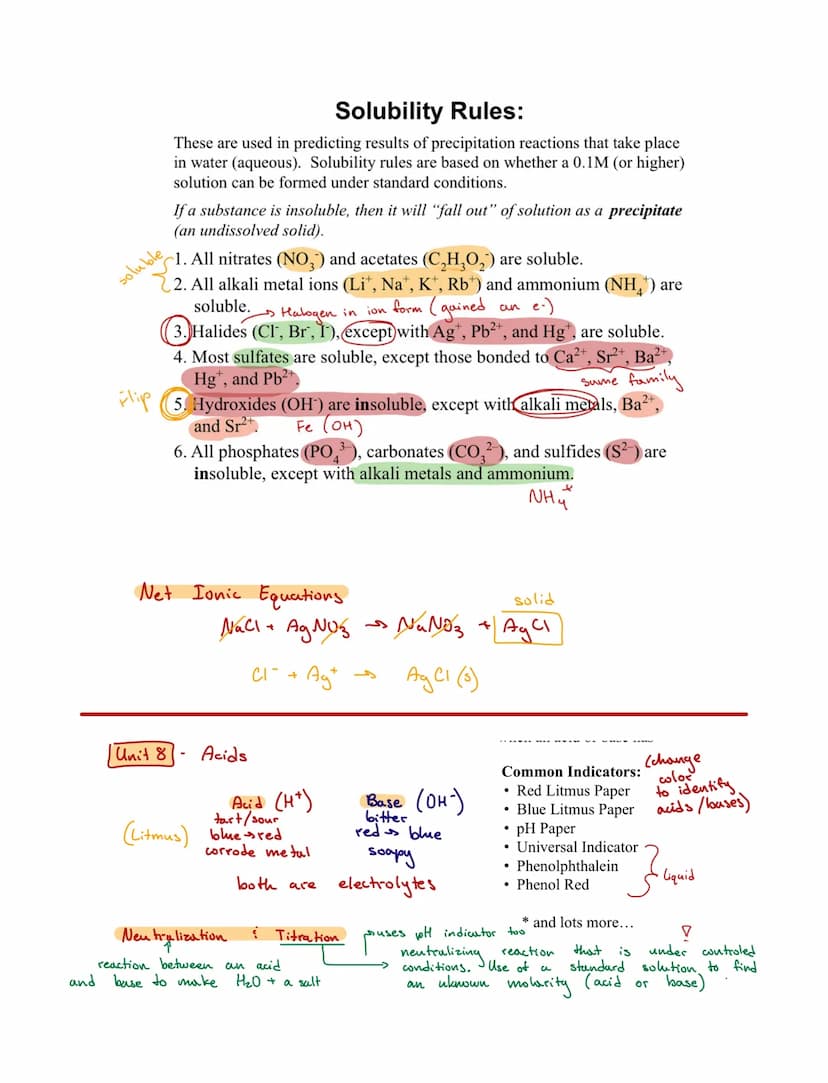 Solubility Rules:
These are used in predicting results of precipitation reactions that take place
in water (aqueous). Solubility rules are based on whether a 0.1M (or higher)
solution can be formed under standard conditions.
If a substance is insoluble, then it will “fall out” of solution as a precipitate
(an undissolved solid).
soluble
1. All nitrates (NO₃⁻) and acetates (C₂H₃O₂⁻) are soluble.
2. All alkali metal ions (Li⁺, Na⁺, K⁺, Rb⁺) and ammonium (NH₄⁺) are
soluble. → Halogen in ion form (gained an e⁻)
3. Halides (Cl⁻, Br⁻, I⁻), except with Ag⁺, Pb²⁺, and Hg⁺, are soluble.
4. Most sulfates are soluble, except those bonded to Ca²⁺, Sr²⁺, Ba²⁺,
Hg⁺, and Pb²⁺.
same family
Flip
5. Hydroxides (OH⁻) are insoluble, except with alkali metals, Ba²⁺,
and Sr²⁺. Fe (OH)
6. All phosphates (PO₄³⁻), carbonates (CO₃²⁻), and sulfides (S²⁻) are
insoluble, except with alkali metals and ammonium.
NH₄⁺
Net Ionic Equations
solid
NaCl + AgNO₃ → NaNO₃ + AgCl
Cl⁻ + Ag⁺ → AgCl (s)
Unit 8 - Acids
Acid (H⁺)
tart/sour
(Litmus) blue → red
corrode metal
Base (OH⁻)
bitter
red → blue
soapy
both are electrolytes
Common Indicators:
(change
color
to identify
acids/bases)
• Red Litmus Paper
• Blue Litmus Paper
• pH Paper
• Universal Indicator
• Phenolphthalein
• Phenol Red
liquid
* and lots more…
Neutralization & Titration
reaction between an acid
and base to make H₂O + a salt
uses pH indicator too
neutrulizing reaction that is under controled
conditions. Use of a standard solution to find
an uknown molarity (acid or base)